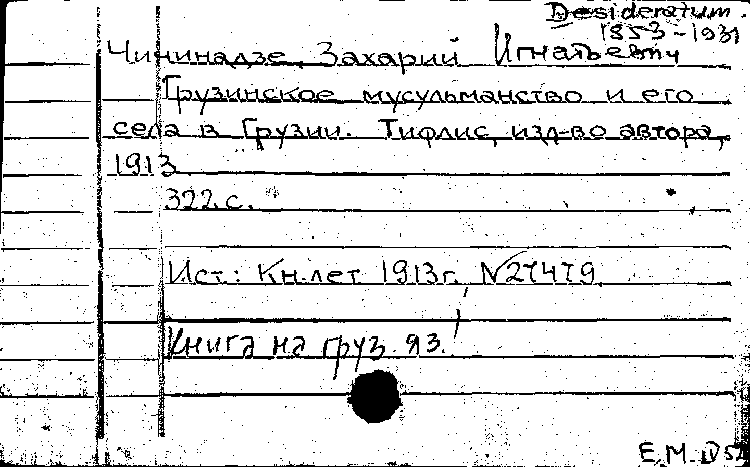 Desideratum.
1853-1931
Чичинадзе, Захарий Игнатьевич
Грузинское мусульманство и его
села в Грузии. Тифлис, изд-во автора,
1913
322 с.
Ист.: Кн. лет. 1913г., №27479.
Книга на груз. яз.
Е.М. IV 52